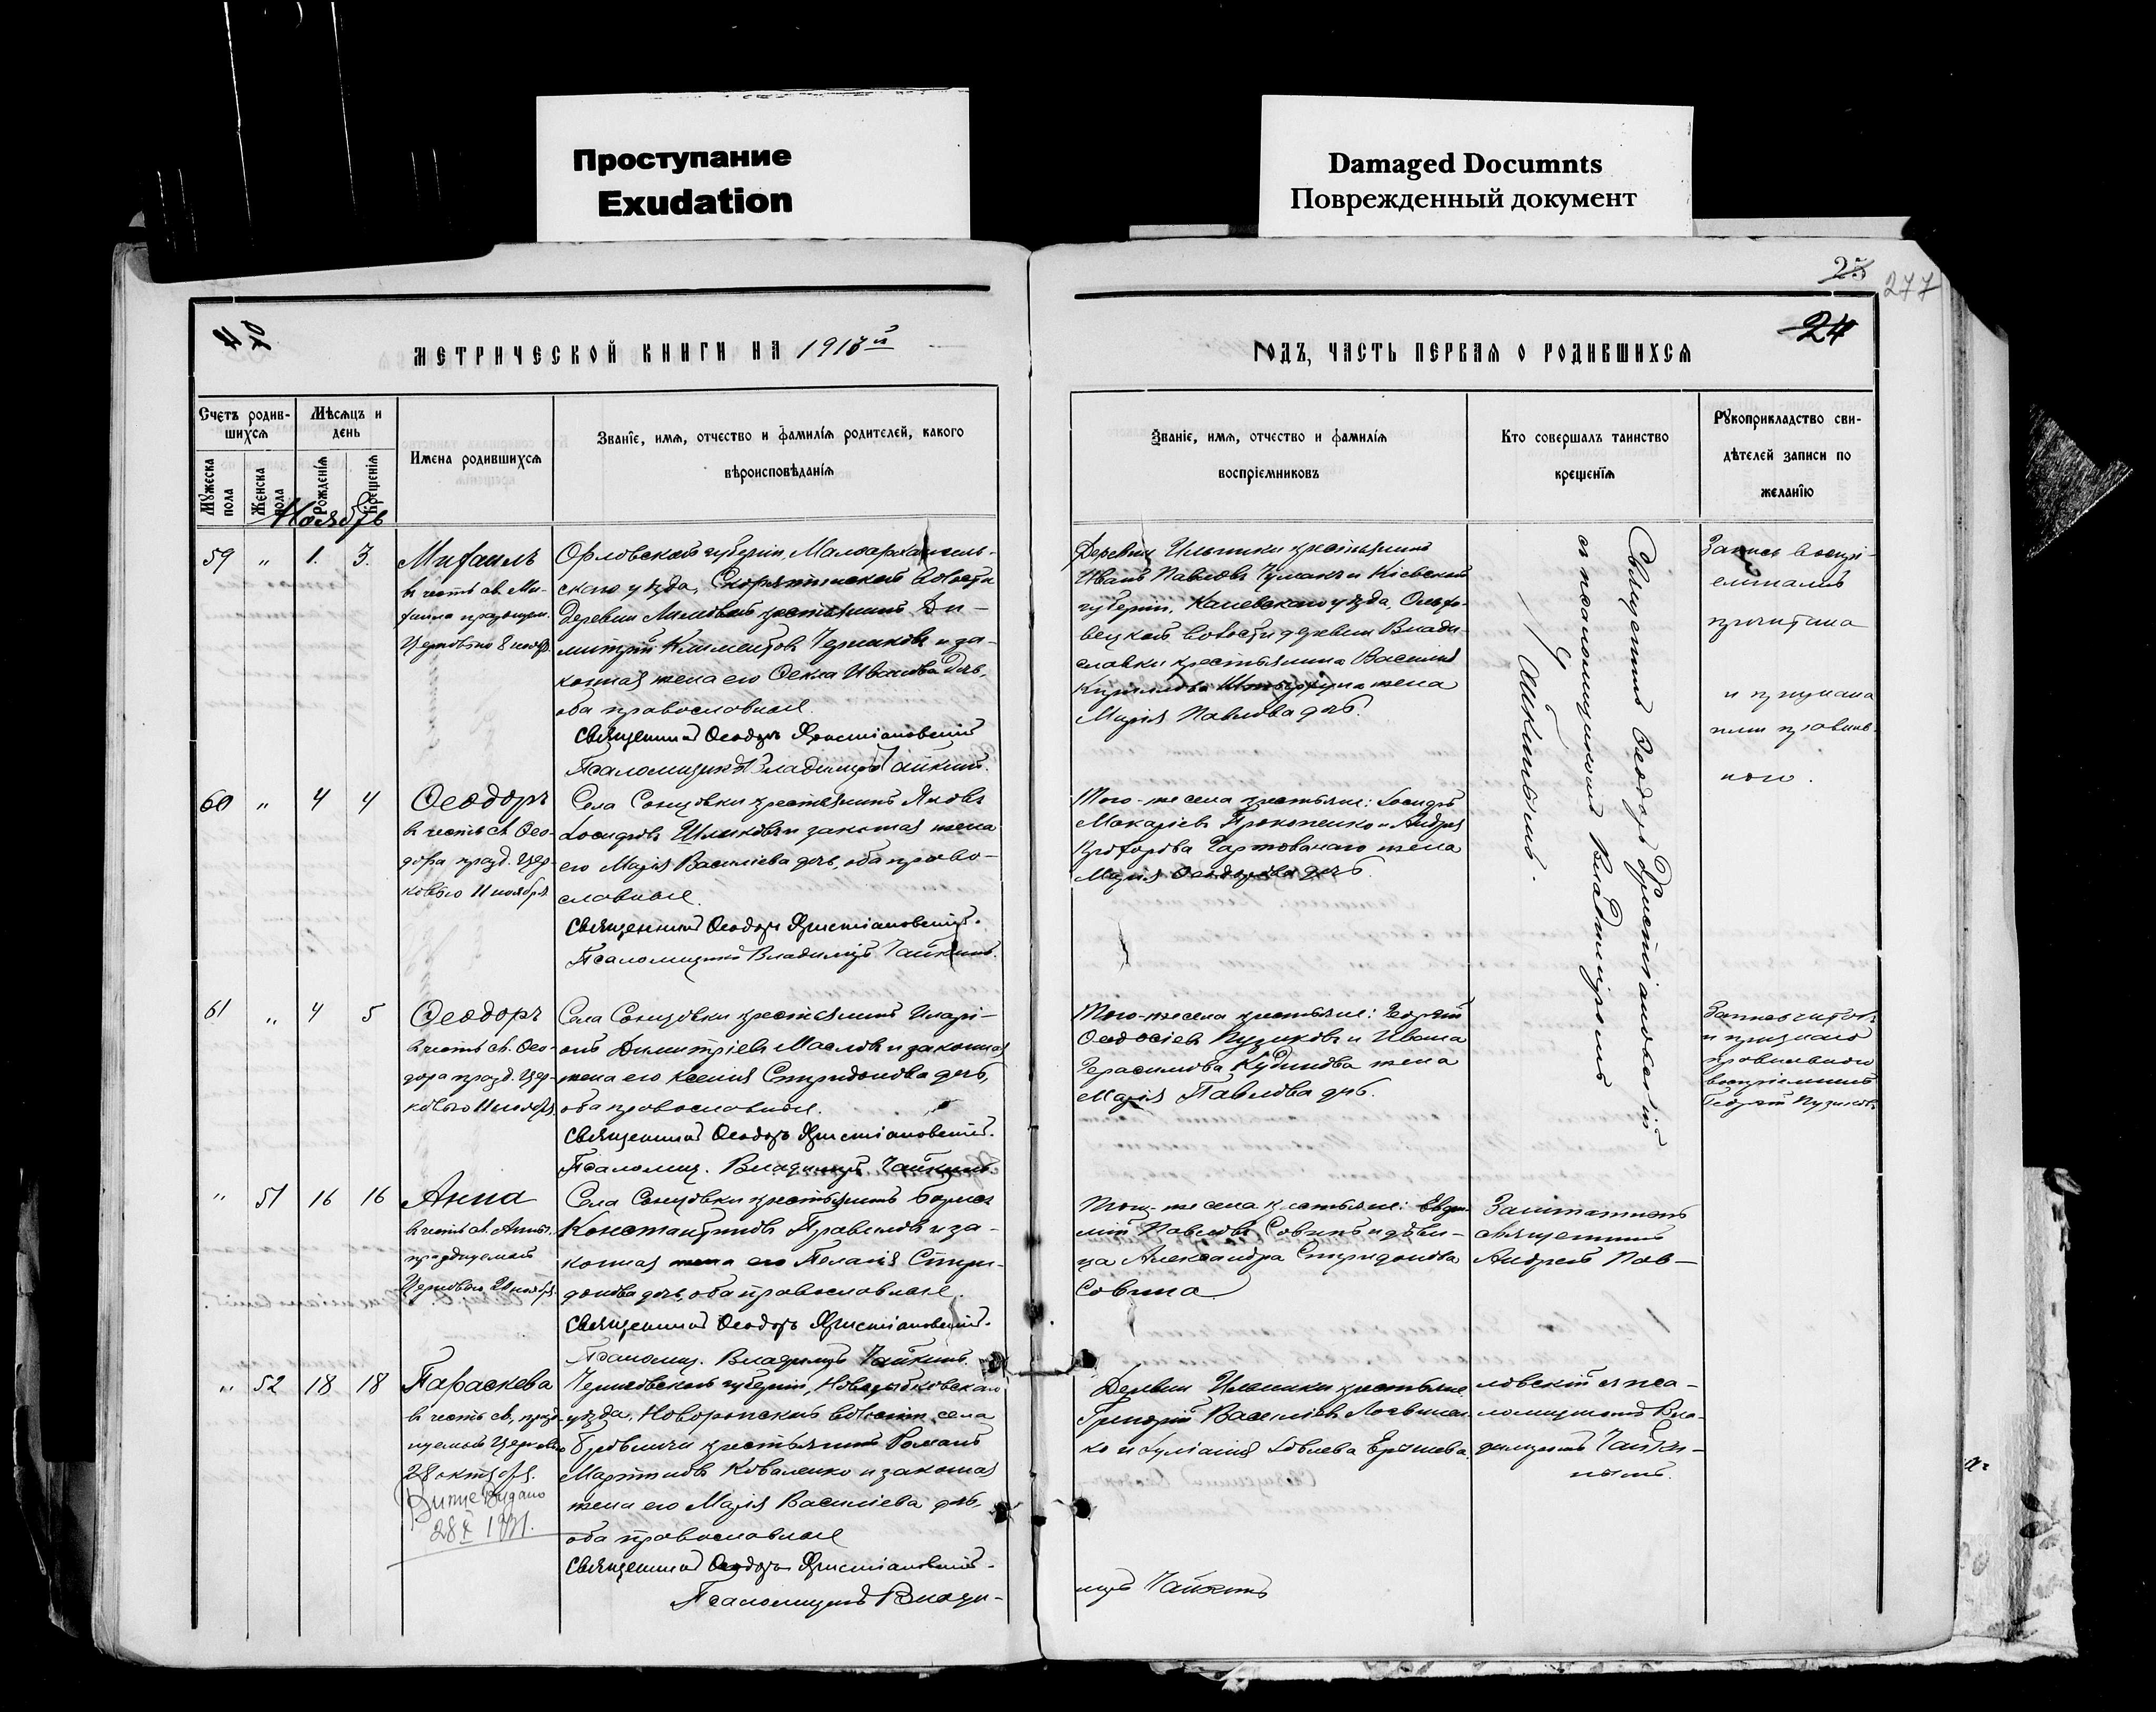 Проступание
Exudation
Damaged Documnts
Поврежденный документ
25
277
24
МЕТРИЧЕСКОЙ КНИГИ НА 191 й
ГОДЪ, ЧАСТЬ ПЕРВАЯ О РОДИВШИХСЯ
Счетъ родив-
шихся
Мѣсяцъ и
день
Мужеска
пола
Женска
пола
Рожденія
Крещенія
Имена родившихся
Званіе, имя, отчество и фамилія родителей, какого
вѣроисповѣданія
Званіе, имя, отчество и фамилія
воспріемниковъ
Кто совершалъ таинство
крещенія
Рукоприкладство сви-
дѣтелей записи по
желанію
Ноябрь
59 " 1. 3.
Михаилъ
въ честь св. Ми-
хаила празднуем.
Церковью 8 нояб.
Орловской губерніи, Малоархангель-
скаго уѣзда, волости
деревни крестьянинъ Ди-
митрій Климентовъ и за-
конная жена его Ѳекла Иванова дчь,
оба православные.
Священникъ Ѳеодоръ Христіановскій
Псаломщикъ Владиміръ Чайкинъ.
Деревни Ильинки крестьянинъ
Иванъ Павловъ Чумакъ и Кіевской
губерніи, Каневскаго уѣзда,
волости деревни Влади-
славки крестьянина Василія
Кириллова жена
Марія Павлова дчь.
Священникъ Ѳеодоръ Христіановскій
съ псаломщикомъ Владиміромъ
Чайкинымъ.
Запись воспрі-
емникамъ
прочитана
и признана
ими правиль-
ною.
60 " 4 4
Ѳеодоръ
въ честь св. Ѳео-
дора празд. Цер-
ковью 11 ноября
Села Сонцовки крестьянинъ Яковъ
Іосифовъ и законная жена
его Марія Василіева дчь, оба право-
славные.
Священникъ Ѳеодоръ Христіановскій.
Псаломщикъ Владиміръ Чайкинъ.
Того-же села крестьяне: Іосифъ
Макаріевъ Прокопенко и Андрея
жена
Марія Ѳеодорова дчь.
61 " 4 5
Ѳеодоръ
въ честь св. Ѳео-
дора празд. Цер-
ковью 11 ноября
Села Сонцовки крестьянинъ Иларі-
онъ Димитріевъ Масловъ и законная
жена его Ксенія Спиридонова дчь,
оба православные.
Священникъ Ѳеодоръ Христіановскій.
Псаломщ. Владиміръ Чайкинъ.
Того-же села крестьяне: Георгій
Ѳеодосіевъ Пузиковъ и Ивана
Герасимова Кудинова жена
Марія Павлова дчь.
Запись читалъ
и призналъ
правильною
воспріемникъ
Георгій Пузиковъ
" 51 16 16
Анна
въ честь св. Анны,
празднуемой
Церковью
Села Сонцовки крестьянинъ Борисъ
Константиновъ и за-
конная жена его Пелагія Спири-
донова дчь, оба православные.
Священникъ Ѳеодоръ Христіановскій.
Псаломщ. Владиміръ Чайкинъ.
Того-же села крестьяне: Евѳи-
мій Павловъ Совинъ и дѣви-
ца Александра Спиридонова
Совина
Заштатный
священникъ
Андрей Пав-
" 52 18 18
Параскева
въ честь св., празд-
нуемой Церковью
28 октября.
28 X 1931.
Черниговской губерніи, Новозыбковскаго
уѣзда, Новоропской волости, села
крестьянинъ Романъ
Мартиновъ Коваленко и законная
жена его Марія Василіева дчь,
оба православные
Священникъ Ѳеодоръ Христіановскій.
Псаломщикъ Влади-
Деревни Ильинки крестьяне
Григорій Василіевъ Логвинен-
ко и Іуліанія Іовлева
ловскій съ пса-
ломщикомъ Вла-
диміромъ Чайки-
нымъ.
міръ Чайкинъ